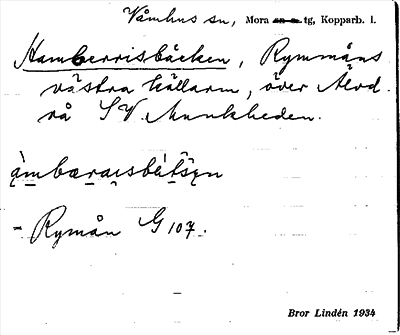 Våmhus sn, Mora tg, Kopparb. l.
Hamberrisbäcken, Rymmåns
västra källarm, över Älvd.
rå SV. Munkheden.
- Rymån G 107.
Bror Lindén 1934